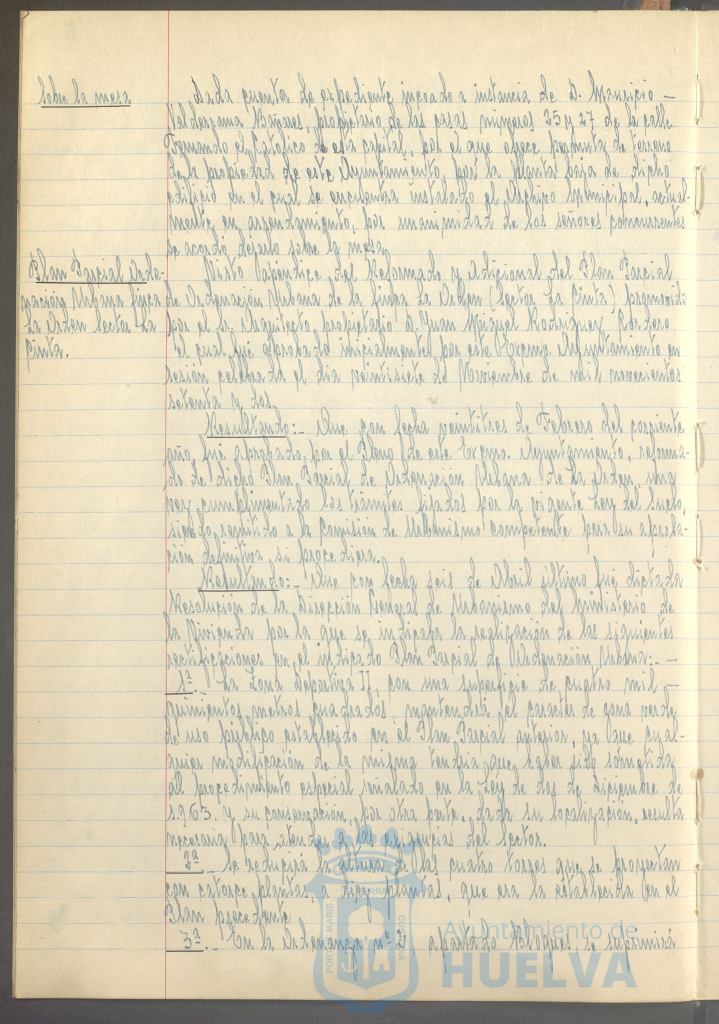 Sobre la mesa
Dada cuenta de expediente incoado a instancia de D. Mauricio
Valderrama Bañares, propietario de las casas números 25 y 27 de la calle
Fernando el Católico de esta capital, por el que ofrece permuta de terreno
de la propiedad de este Ayuntamiento, por la planta baja de dicho
edificio en el cual se encuentra instalado el Archivo Municipal, actual-
mente en arrendamiento, por unanimidad de los señores concurrentes
se acordó dejarlo sobre la mesa.
Plan Parcial Orde-
nación Urbana finca
La Orden Sector La
Cinta.
Visto Apéndice del Reformado y Adicional del Plan Parcial
de Ordenación Urbana de la finca La Orden (Sector La Cinta)
por el Sr. Arquitecto D. Juan Miguel Rodríguez Cordero
el cual fué aprobado inicialmente por este Excmo. Ayuntamiento en
sesión celebrada el día veintisiete de Noviembre de mil novecientos
setenta y dos.
Resultando:- Que con fecha veintitres de Febrero del corriente
año, fué aprobado por el Pleno de este Excmo. Ayuntamiento, reforma-
do de dicho Plan Parcial de Ordenación Urbana de La Orden, una
vez cumplimentado los trámites fijados por la vigente Ley del Suelo,
siendo remitido a la Comisión de Urbanismo competente para su aproba-
ción definitiva, si procediera.
Resultando:- Que con fecha seis de Abril último fué dictada
Resolución de la Dirección General de Urbanismo del Ministerio de
la Vivienda por la que se indicaba la realización de las siguientes
rectificaciones en el indicado Plan Parcial de Ordenación Urbana:-
1ª.- La Zona Deportiva II, con una superficie de cuatro mil
quinientos metros cuadrados, mantendrá el carácter de zona verde
de uso público establecido en el Plan Parcial anterior, ya que cual-
quier modificación de la misma tendría que haber sido sometida
al procedimiento especial señalado en la Ley de dos de Diciembre de
1.963, y su conservación, por otra parte, dada su localización, resulta
necesaria para atender a las exigencias del sector.
2ª.- Se reducirá la altura de las cuatro torres que se proyectan
con catorce plantas, a diez plantas, que era la establecida en el
Plan precedente.
3ª.- En la Ordenanza nº apartado Bloques, se suprimirá
PORTUS MARIS CUSTODIA
Ayuntamiento de
HUELVA